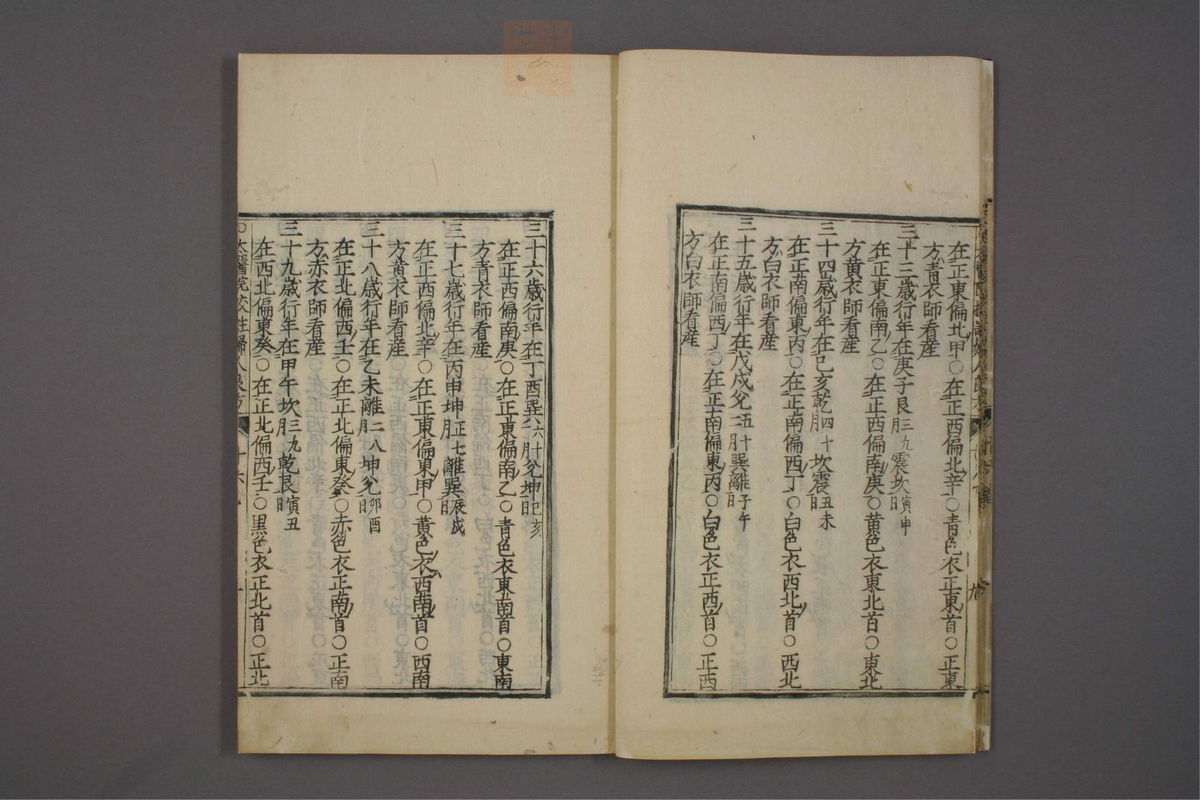 在正東偏北甲〇在正西偏北辛〇青色衣正東首〇正東
方青衣師看産
三十三歲行年在庚子艮三九震坎寅申
月日
在正東偏南乙〇在正西偏南庚〇黄色衣東北首〇東北
方黄衣師看産
三十四歲行年在已亥乾四十坎震丑未
月
在正南偏東丙〇在正南偏西丁〇白色衣西北首〇西北
方白衣師看産
三十五歲行年在戊戍兊五十一巽離子午
月日
在正南偏西丁〇在正南偏東丙〇白色衣正西首〇正西
方白衣師看産
三十六歲行年在丁酉巽六十二兊坤巳亥
月日
在正西偏南庚〇在正東偏南乙〇青色衣東南首〇東南
方青衣師看産
三十七歲行年在丙申坤正七離巽辰戍
月日
在正西偏北辛〇在正東偏東甲〇黄色衣西南首〇西南
方黄衣師看産
三十八歲行年在乙未離二八坤兊卯酉
月日
在正北偏西壬〇在正北偏東癸〇赤色衣正南首〇正南
方赤衣師看産
三十九歲行年在甲午坎三九乾艮寅丑
月日
在西北偏東癸〇在正北偏西壬〇黑色衣正北首〇正北
〇太醫院校註婦人良方